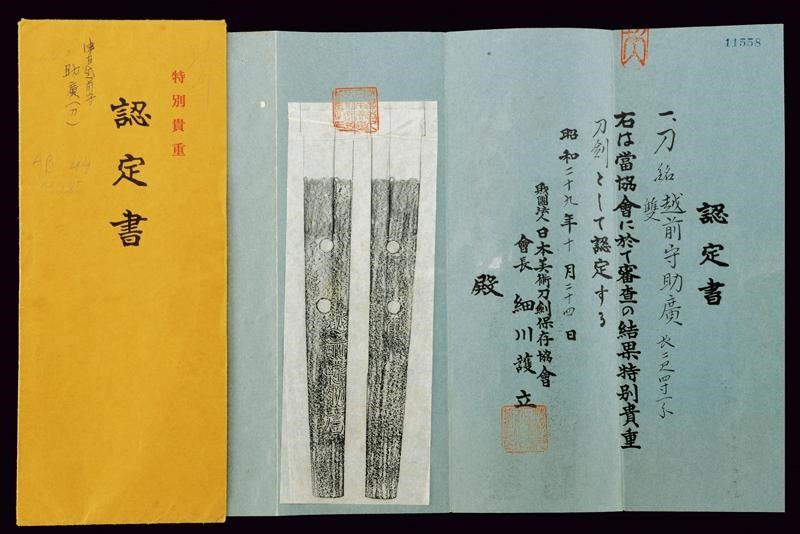 特別貴重
認定書
助廣（刀）
11558
認定書
一、刀 銘 越前守助廣 長二尺四寸一分
雙
右は當協會に於て審査の結果特別貴重
刀劍として認定する
昭和二十九年十月二十四日
財團法人日本美術刀劍保存協會
會長 細川護立
殿